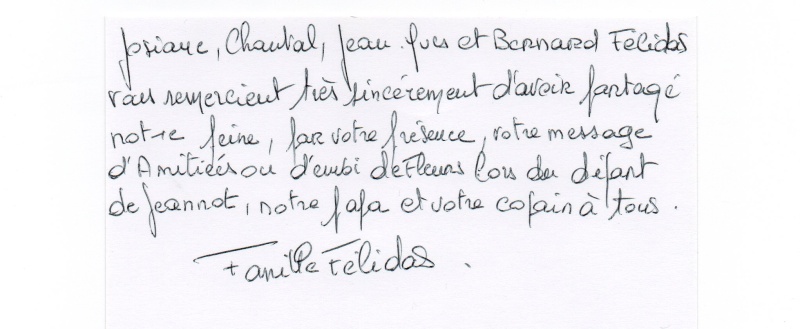 Josiane, Chantal, Jean-Yves et Bernard Félidas
vous remercient très sincérement d'avoir partagé
notre peine, par votre présence, votre message
d'Amitiées ou d'envoi de Fleurs lors du départ
de Jeannot, notre papa et votre copain à tous.
Famille Félidas.